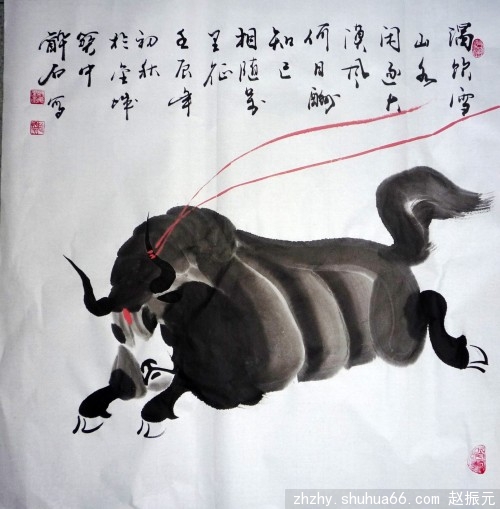 渴饮雪
山水
闲逐大
漠风
何日酬
知己
相随万
里征
壬辰年
初秋
於金
中
石写
zhzhy.shuhua66.com 赵振元